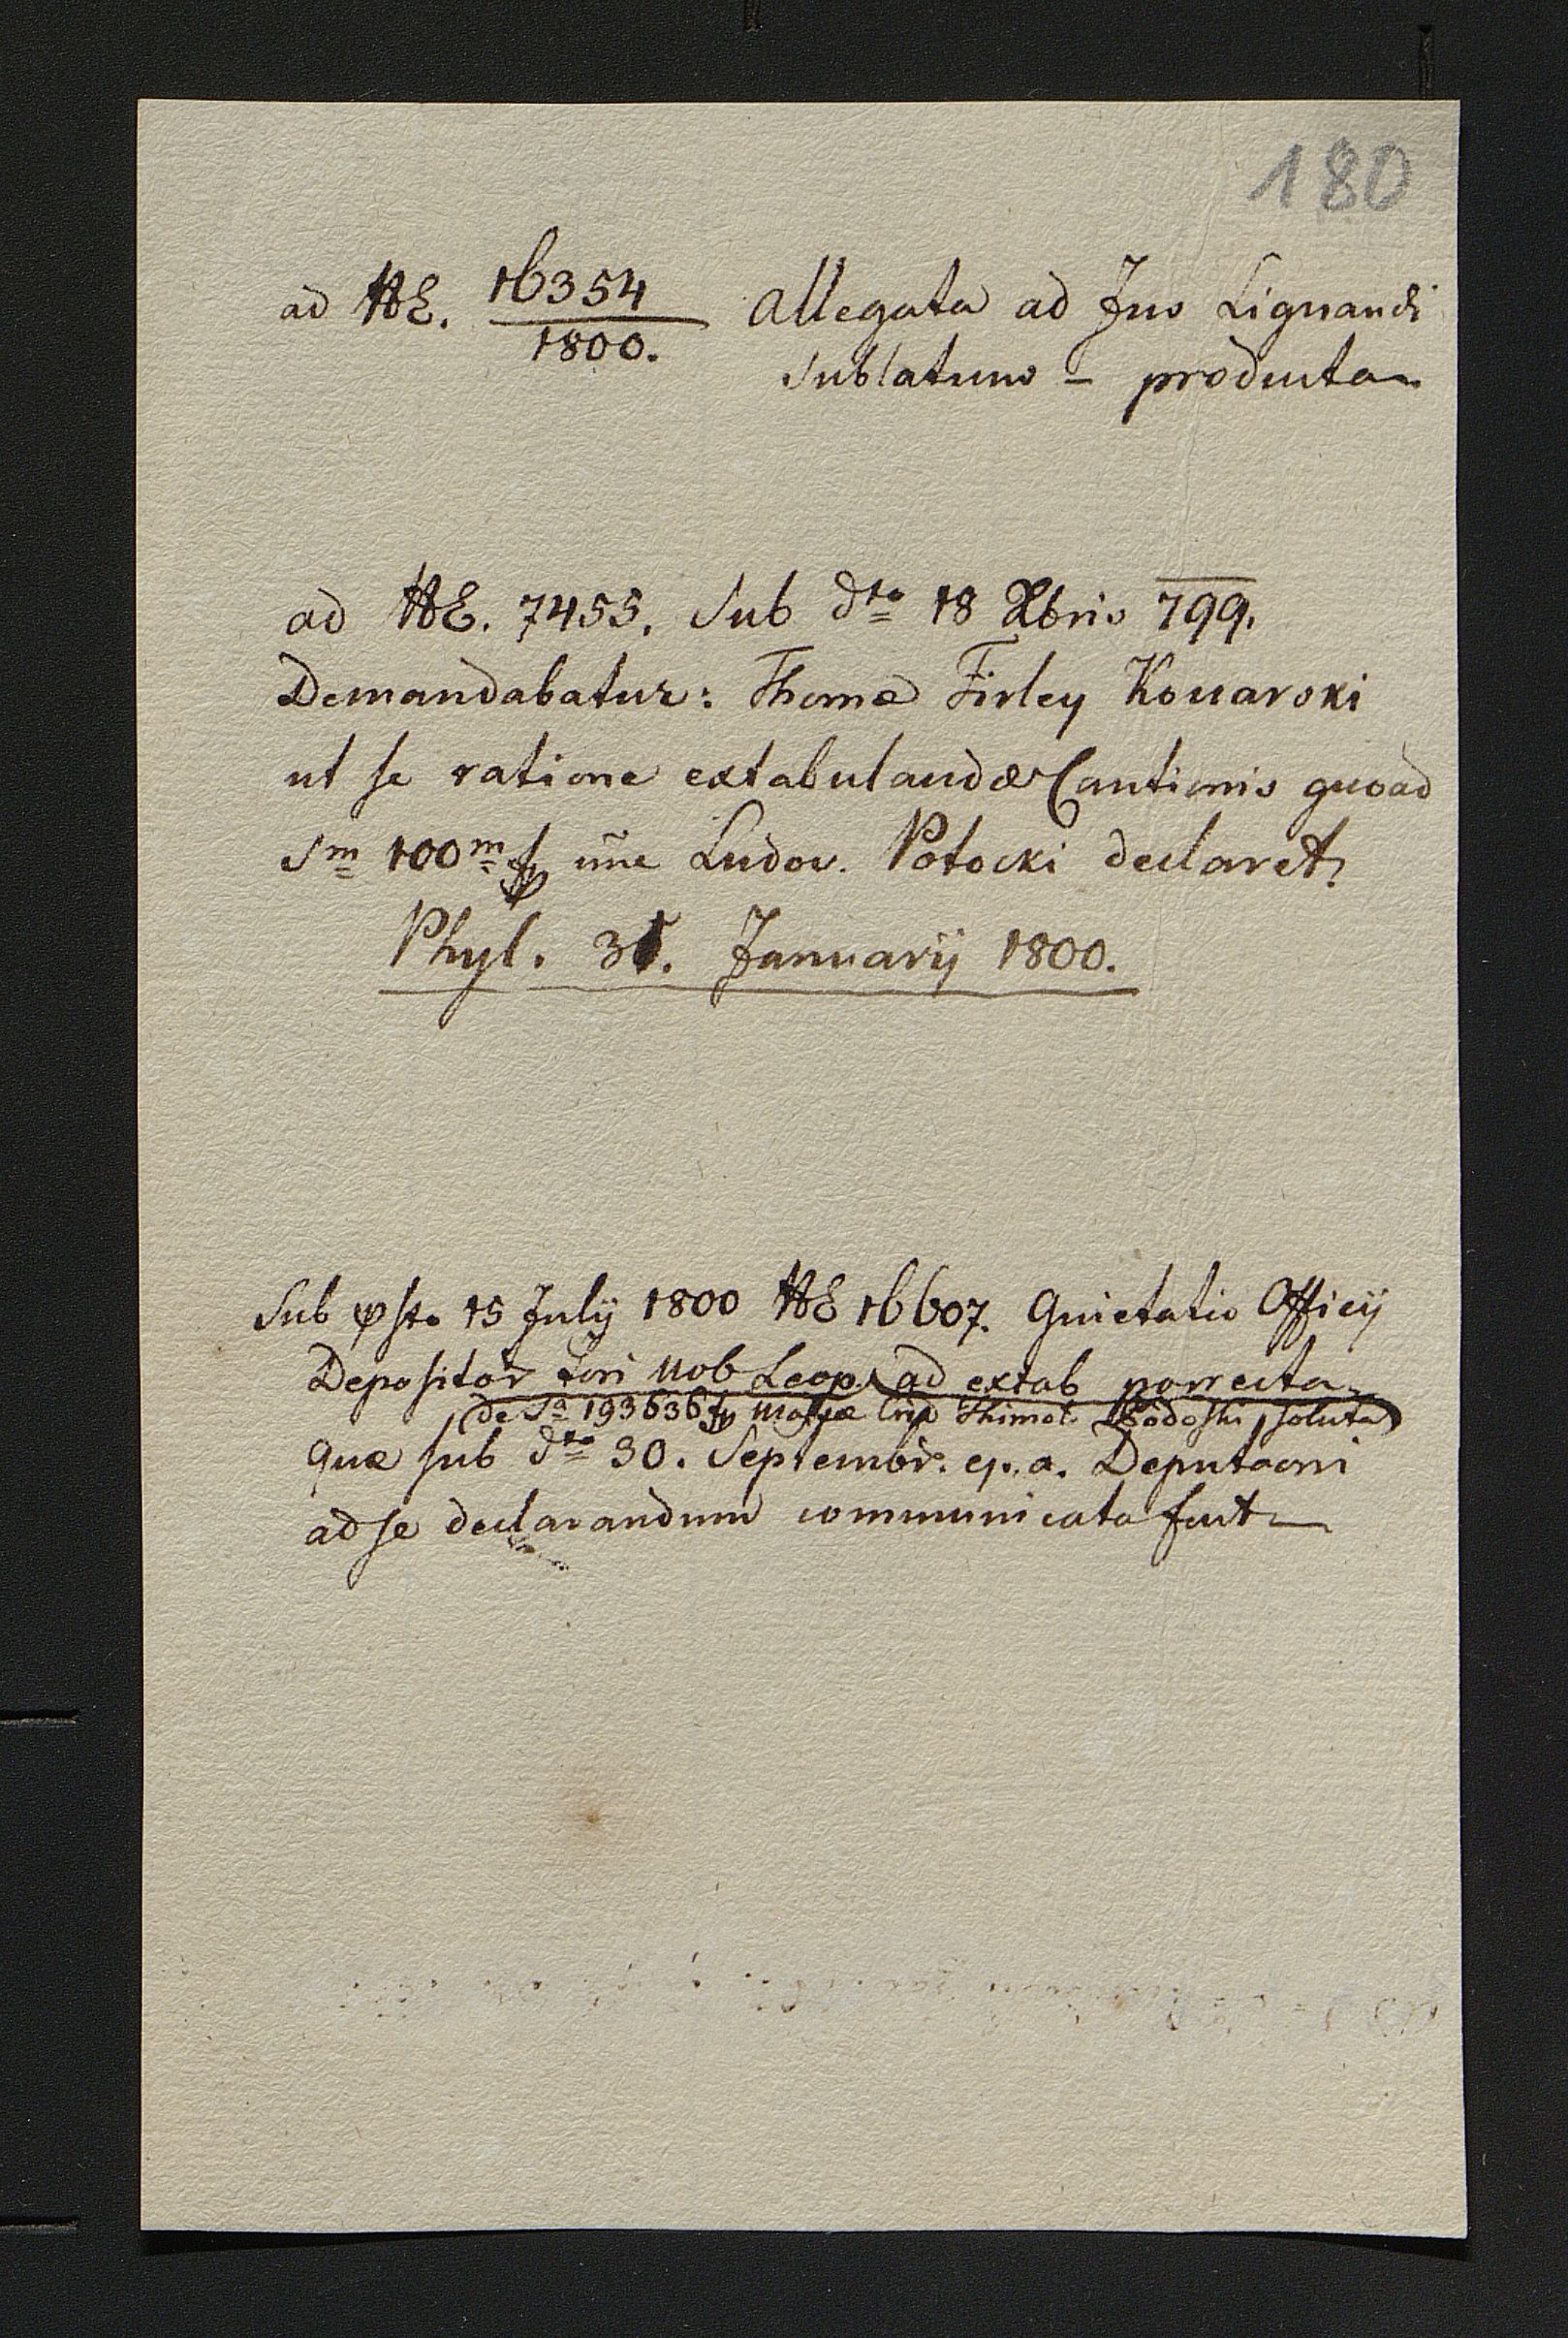 180
ad NE. 16354/1800. Allegata ad Jus Lignandi
sublatum – producta
ad NE. 7455. Sub dto 18 Xbris 799.
Demandabatur: Thomæ Firley Konarski
ut se ratione extabulandæ Cautionis quoad
Sm 100m fp Ludov. Potocki declaret.
Phyl. 31. Januarij 1800.
Sub psto 15 July 1800 NE 16607. Quietatio Officij
Depositor Fori Nob Leop. ad extab porrecta
de Sa 193636 fp Thimot. soluta
quæ sub dto 30. Septembr. ej. a. Deputaoni
ad se declarandum communicata fuit